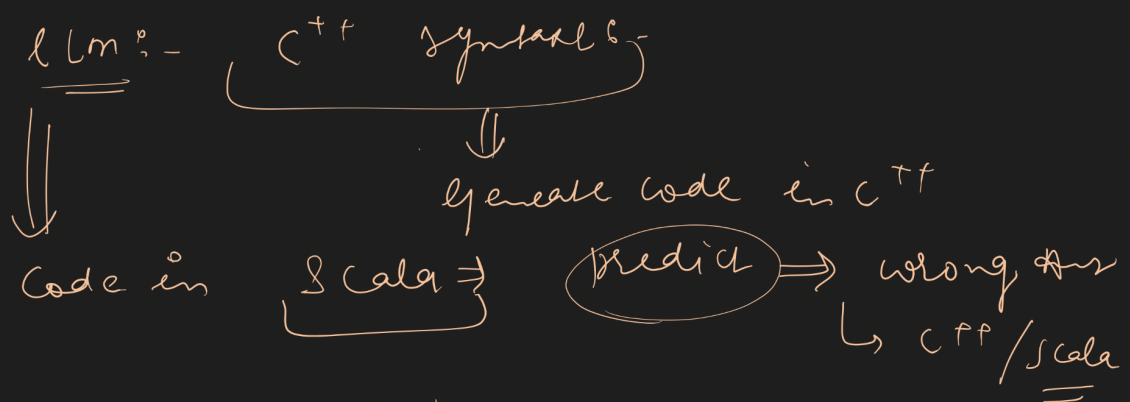 LLM :- C++ syntax :-
Generate code in C++
Code in Scala => predict => wrong Ans
C++ / Scala